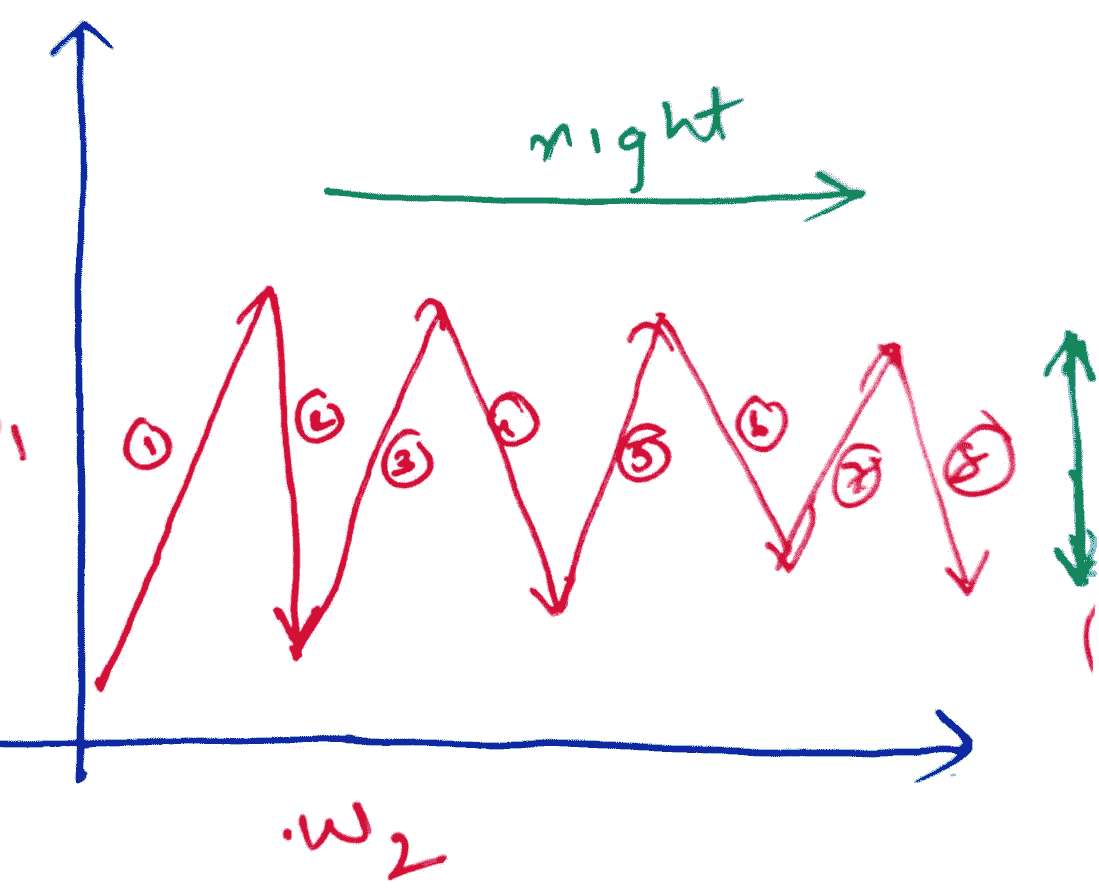 right
1
①
②
③
④
⑤
⑥
⑦
⑧
.W2